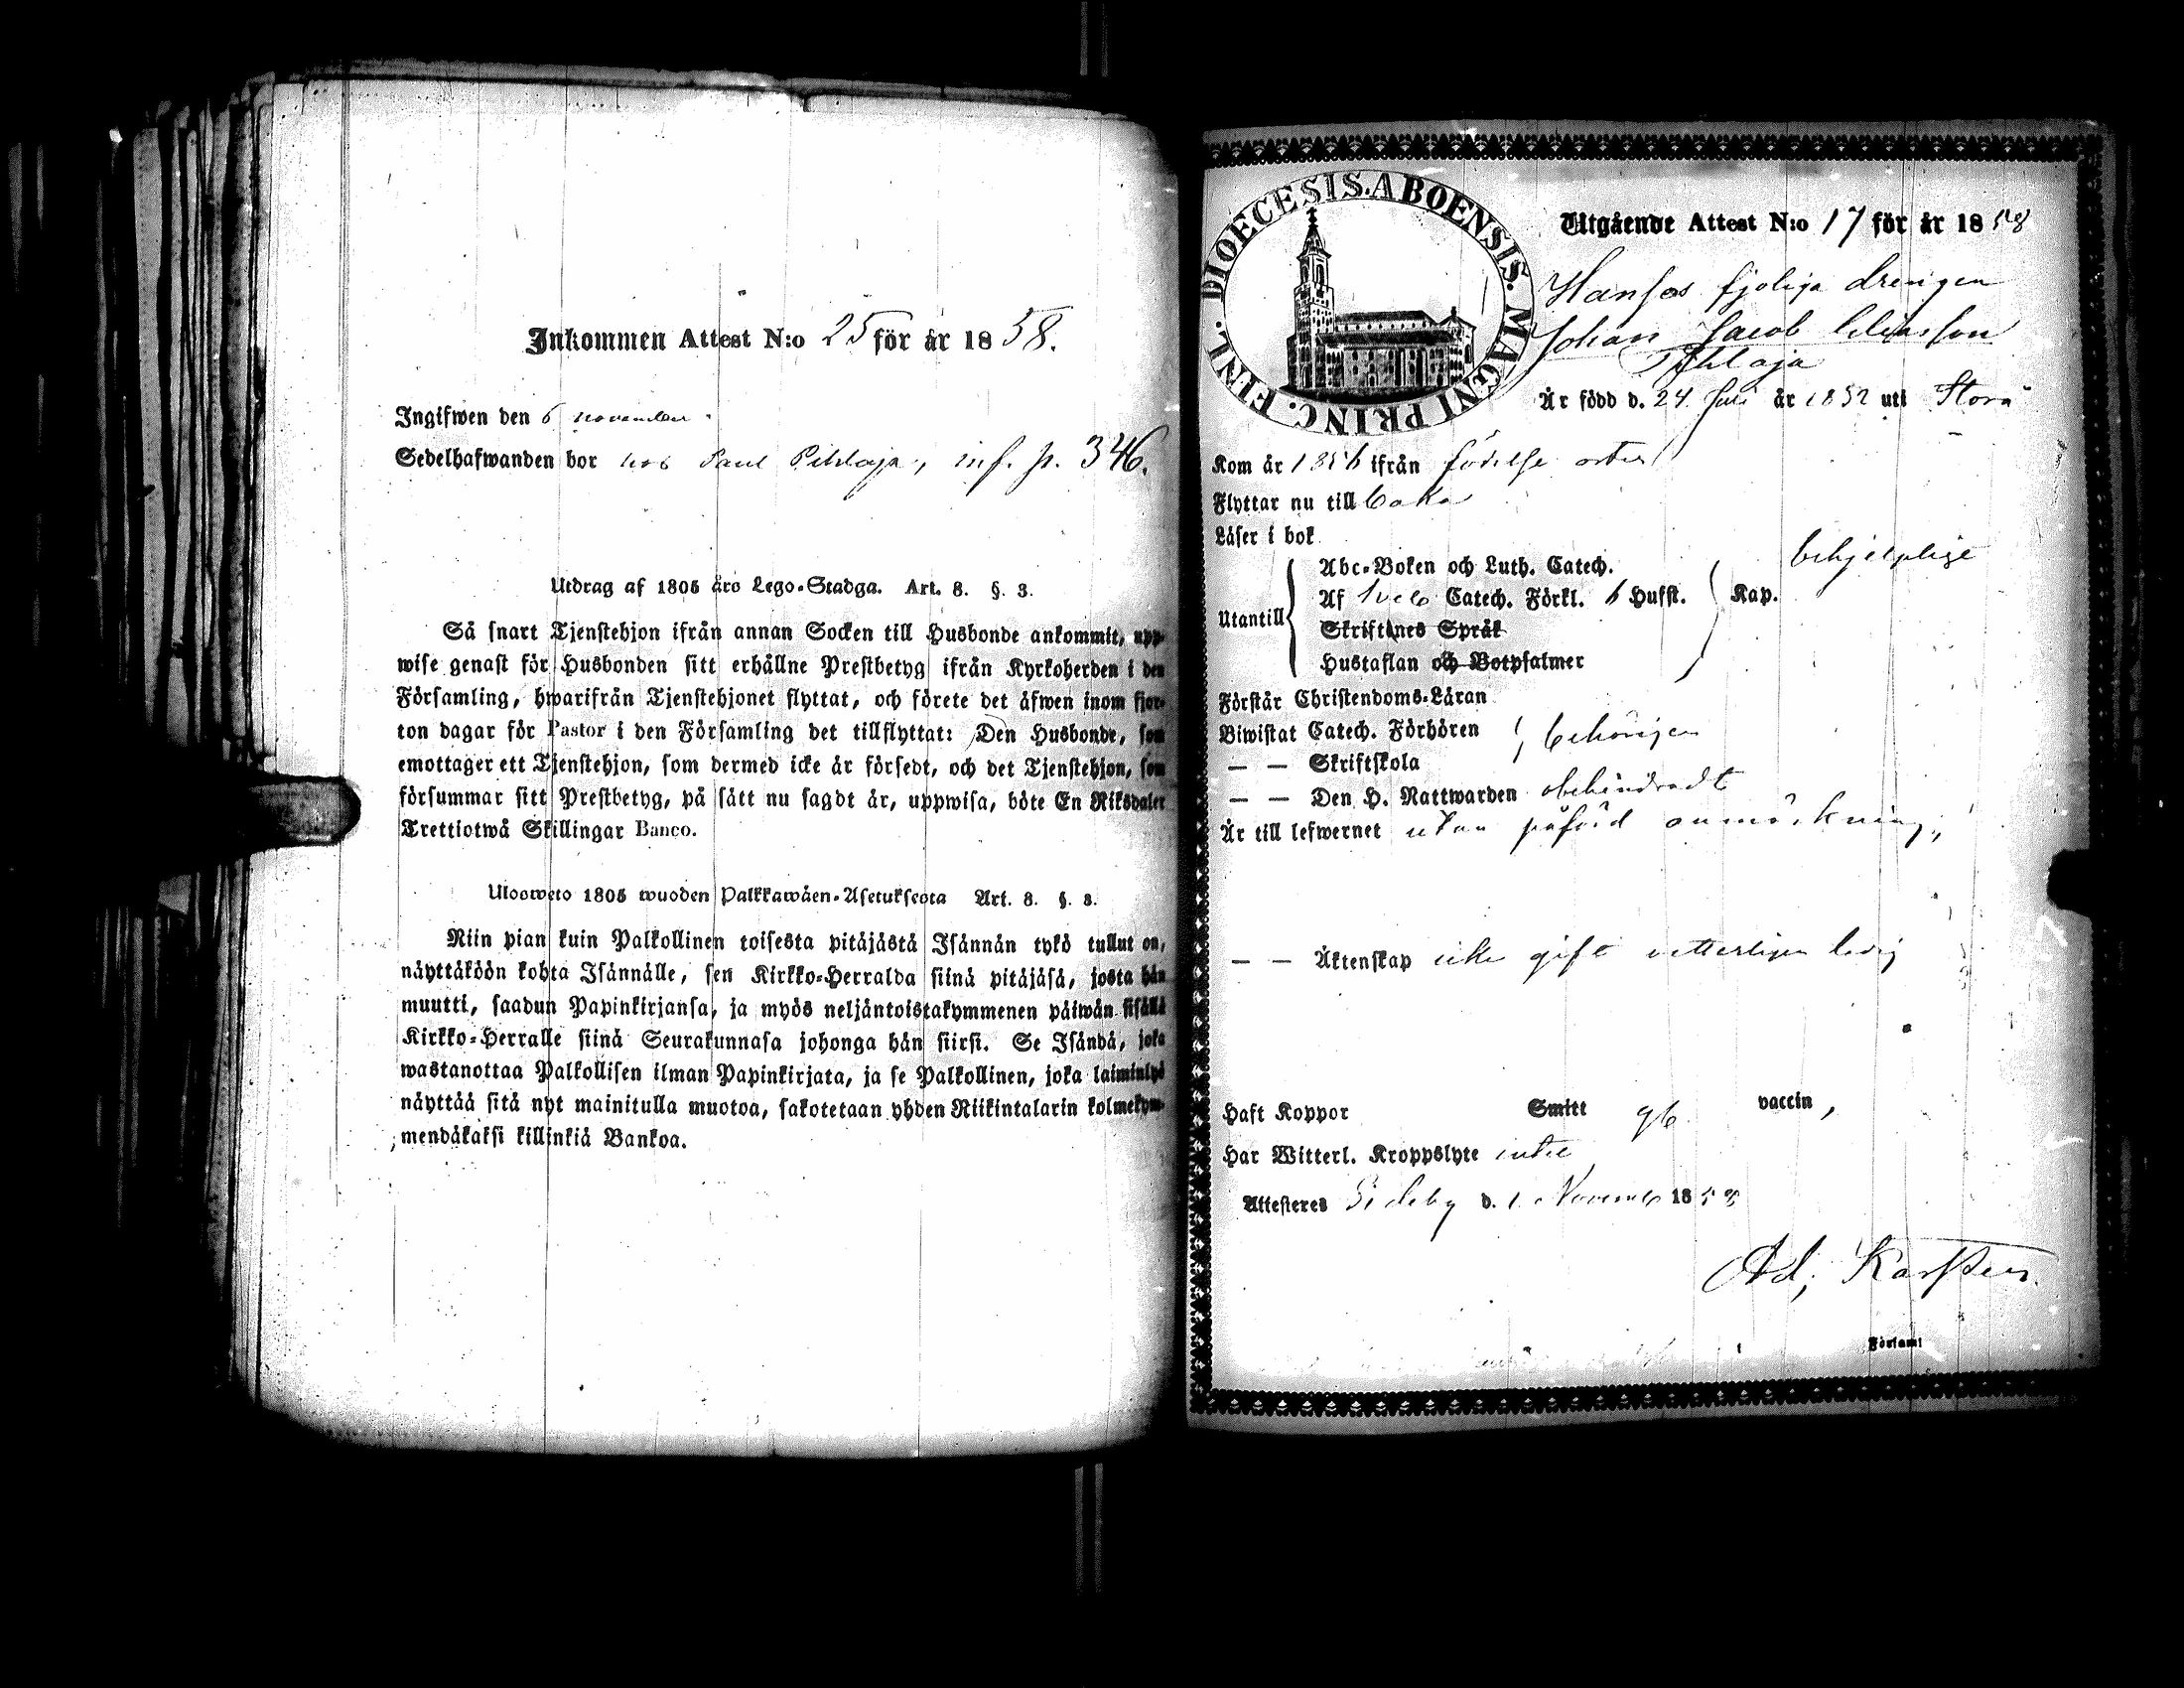 Inkommen Attest N:o 25 för år 1858.
Ingifwen den 6 november
Sedelhafwanden bor hos Paul Pihlaja, inf. p. 346.
Utdrag af 1805 års Lego-Stadga. Art. 8. §. 3.
Så snart Tjenstehjon ifrån annan Socken till Husbonde ankommit, upp-
wise genast för Husbonden sitt erhållne Prestbetyg ifrån Kyrkoherden i den
Församling, hwarifrån Tjenstehjonet flyttat, och förete det äfwen inom fjor-
ton dagar för Pastor i den Församling det tillflyttat: Den Husbonde, som
emottager ett Tjenstehjon, som dermed icke är försedt, och det Tjenstehjon, som
försummar sitt Prestbetyg, på sätt nu sagdt är, uppwisa, böte En Riksdaler
Trettiotwå Skillingar Banco.
Ulosweto 1805 wuoden Palkkawäen-Asetuksesta Art. 8. §. 3.
Niin pian kuin Palkollinen toisesta pitäjästä Isännän tykö tullut on,
näyttäköön kohta Isännälle, sen Kirkko-Herralda siinä pitäjäsä, josta hän
muutti, saadun Papinkirjansa, ja myös neljäntoistakymmenen päiwän sisällä
Kirkko-Herralle siinä Seurakunnasa johonga hän siirsi. Se Isändä, joka
wastanottaa Palkollisen ilman Papinkirjata, ja se Palkollinen, joka laiminlyö
näyttää sitä nyt mainitulla muotoa, sakotetaan yhden Riikintalarin kolmekym-
mendäkaksi killinkiä Bankoa.
DIOECESIS. ABOENSIS. MAGNI PRINC. FINL.
Utgående Attest N:o 17 för år 1858
drengen
Johan Jacob
Pihlaja
Är född d. 24 Juli år 1832 uti Storå
Kom år 1856 ifrån födelse orten
Flyttar nu till baka
Läser i bok
behjelpligt
Abc-Boken och Luth. Catech.
Af Sveb Catech. Förkl. 6 Hufst. Kap.
Utantill
Skriftenes Språk
Hustaflan och Botpsalmer
Förstår Christendoms-Läran
Biwistat Catech. Förhören behörigen
— — Skriftskola
— — Den H. Nattwarden obehindradt
Är till lefwernet utan påförd anmärkning,
— — Äktenskap icke gift vetterligen ledig
Haft Koppor Smitt vaccin,
Har Witterl. Kroppslyte intet
Attesteres Sideby d. 1 Novemb 1858
Ad, Karsten
Församl